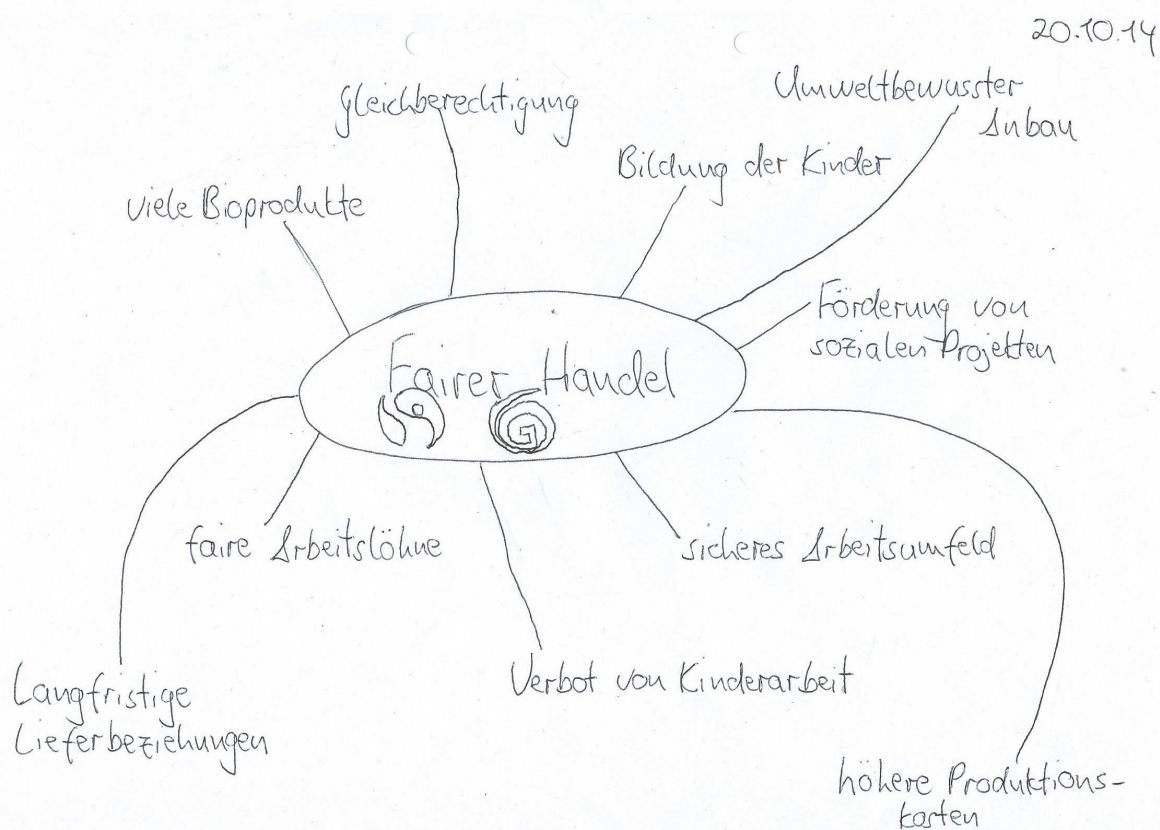 20.10.14
Gleichberechtigung
Umweltbewusster
Anbau
Bildung der Kinder
viele Bioprodukte
Förderung von
sozialen Projekten
Fairer Handel
faire Arbeitslöhne
sicheres Arbeitsumfeld
Verbot von Kinderarbeit
Langfristige
Lieferbeziehungen
höhere Produktions-
kosten